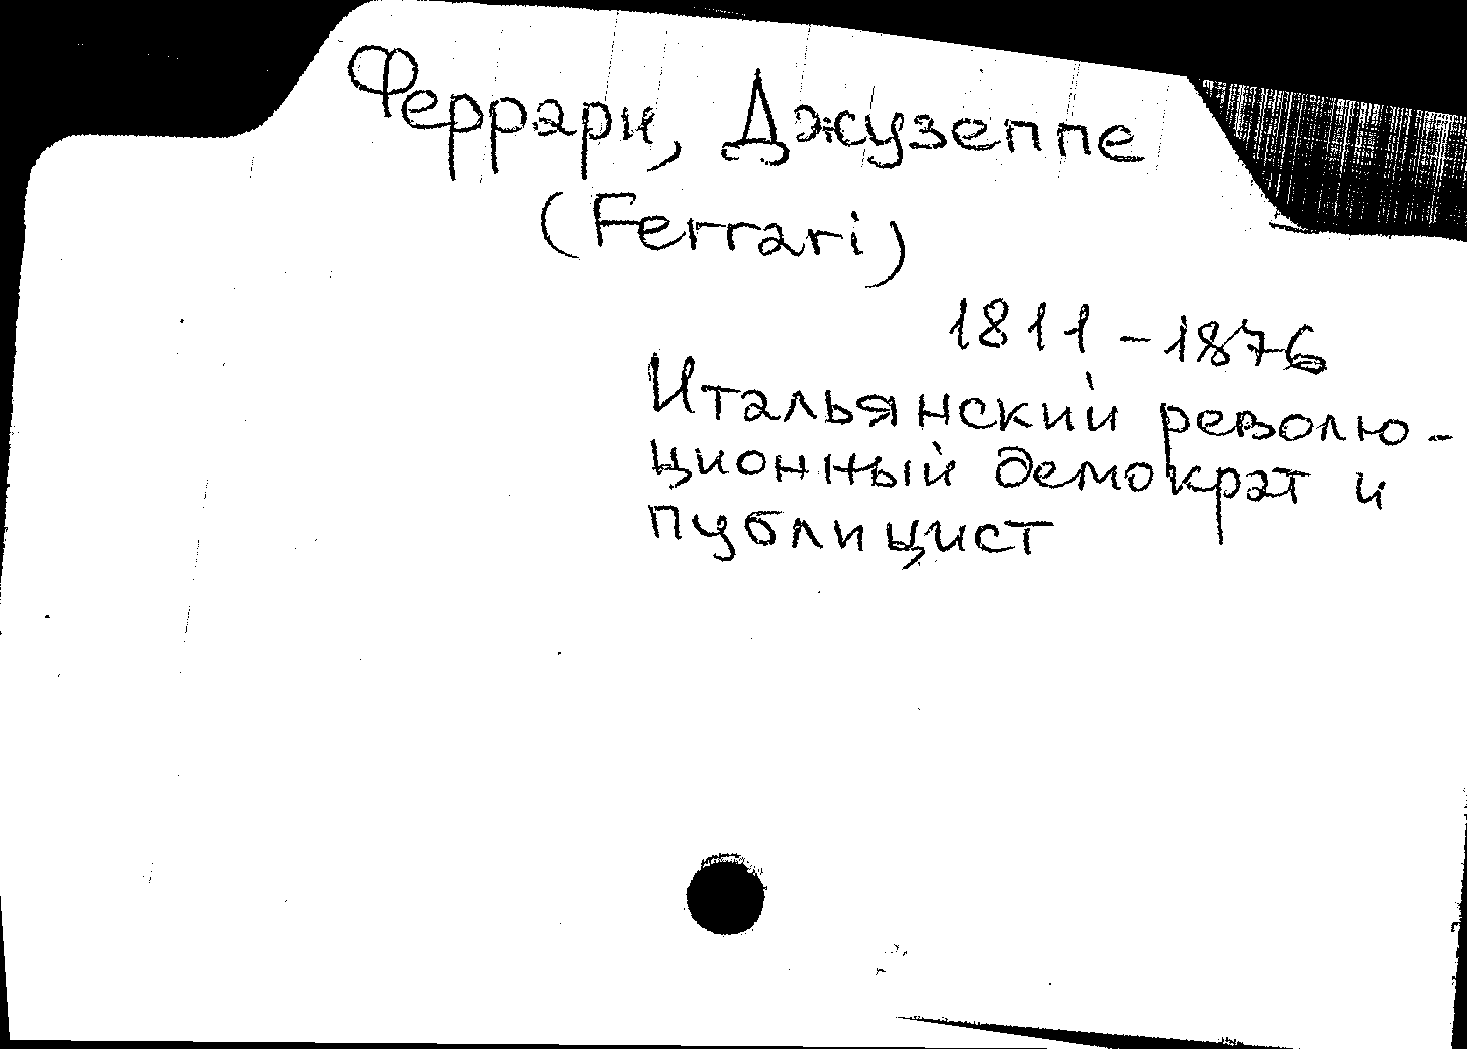 Феррари, Джузеппе
(Ferrari)
1811-1876
Итальянский револю-
ционный демократ и
публицист